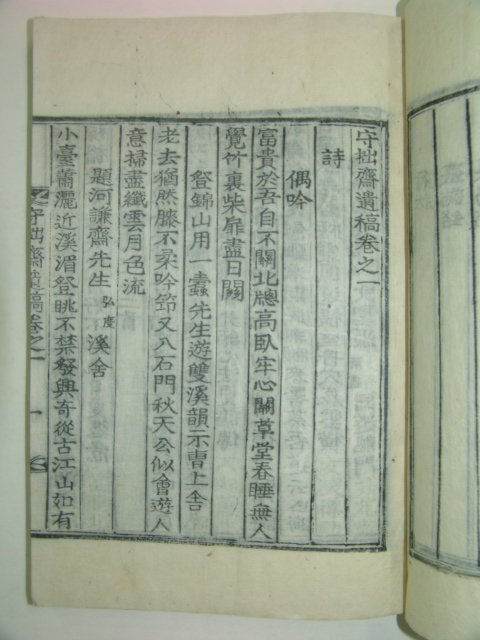 守拙齋遺稿卷之一
詩
偶吟
富貴於吾自不關北牕高臥牢心關草堂春睡無人
覺竹裏柴扉盡日關
登錦山用一蠹先生遊雙溪韻示曺上舍
老去猶然膝不柔吟笻又入石門秋天公似會遊人
意掃盡纖雲月色流
題河謙齋先生弘度溪舍
小臺蕭灑近溪湄登眺不禁發興奇從古江山如有
守拙齋遺稿卷之一 一